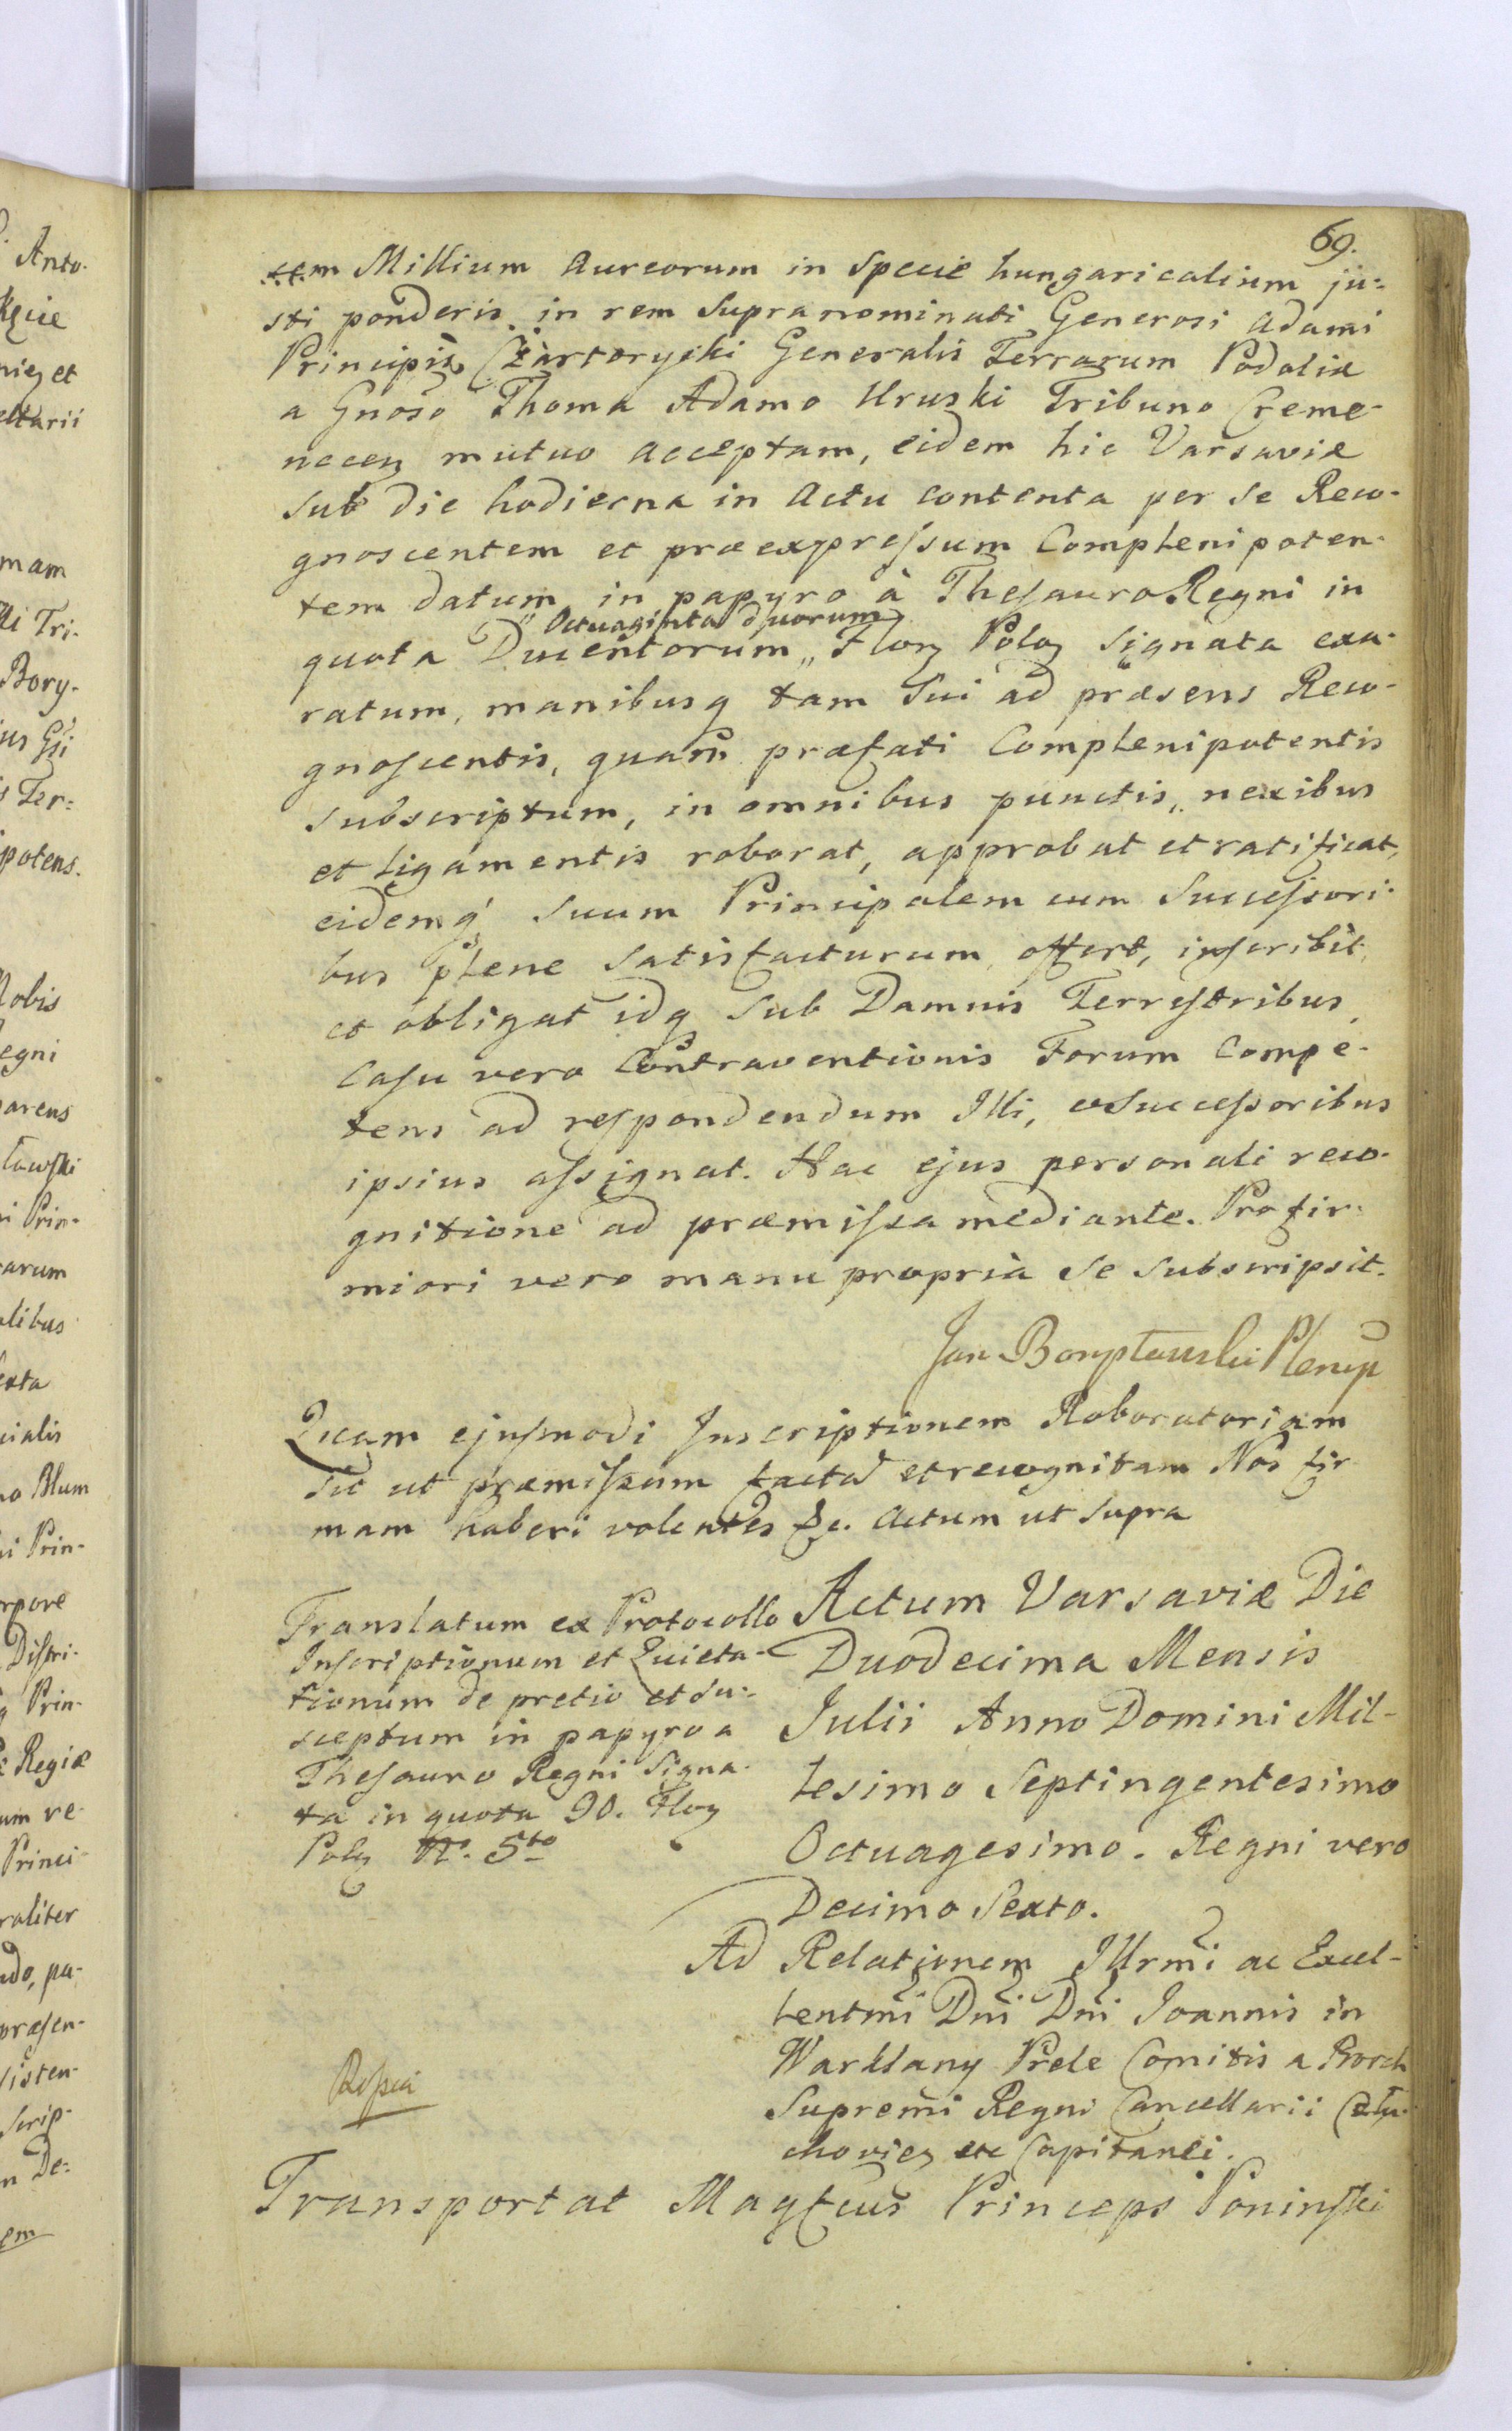 69.
tem Millium Aureorum in Specie hungaricalium ju-
sti ponderis in rem Supranominati Generosi Adami
Principis Czartoryski Generalis Terrarum Podoliæ
a Gnoso Thoma Adamo Uruski Tribuno Creme-
necen mutuo acceptam, eidem hic Varsaviæ
sub die hodierna in Actu contenta per se Reco-
gnoscentem et præexpressum Complenipoten-
tem datum in papyro à Thesauro Regni in
Octuaginta duorum
quota Ducentorum „ Flor Polo Signata exa-
ratum, manibusq tam Sui ad præsens Reco-
gnoscentis, quam præfati Complenipotentis
subscriptum, in omnibus punctis, nexibus
et ligamentis roborat, approbat et ratificat,
eidemq suum Principalem cum Successori-
bus plene satisfacturum offert, inscribit,
et obligat idq sub Damnis Terrestribus,
Casu vero Contraventionis Forum Compe-
tens ad respondendum Illi, et Successoribus
ipsius assignat. Hac ejus personali reco-
gnitione ad præmissa mediante. Pro fir-
miori vero manu propria se subscripsit.
Jan Borysławski Plenip
Quam ejusmodi Inscriptionem Roboratoriam
sic ut præmissum factā et recognitam Nos fir-
mam haberi volentes &c. Actum ut supra
Translatum ex Protocollo
Inscriptionum et Quieta-
tionum de pretio et su-
sceptum in papyro a
Thesauro Regni Signa-
ta in quota 90. Flor
Pol N. 5to
Actum Varsaviæ Die
Duodecima Mensis
Julii Anno Domini Mil-
lesimo Septingentesimo
Octuagesimo. Regni vero
Decimo Sexto.
Ad Relationem Illrmi ac Excel-
lentmi Dni Dni Joannis in
Warklany Prele Comitis a Borch
Supremi Regni Cancellarii
et Capitanei.
Transportat Magfcus Princeps Poninski